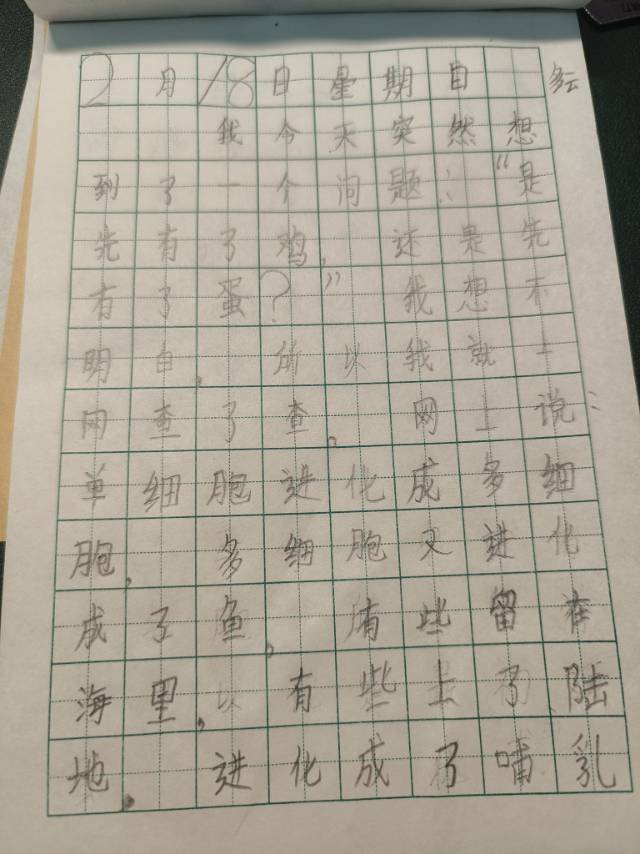 2月18日星期日 多云
我今天突然想
到了一个问题：“是
先有了鸡，还是先
有了蛋？”我想不
明白，所以我就上
网查了查。网上说：
单细胞进化成多细
胞，多细胞又进化
成了鱼，有些留在
海里，有些上了陆
地，进化成了哺乳